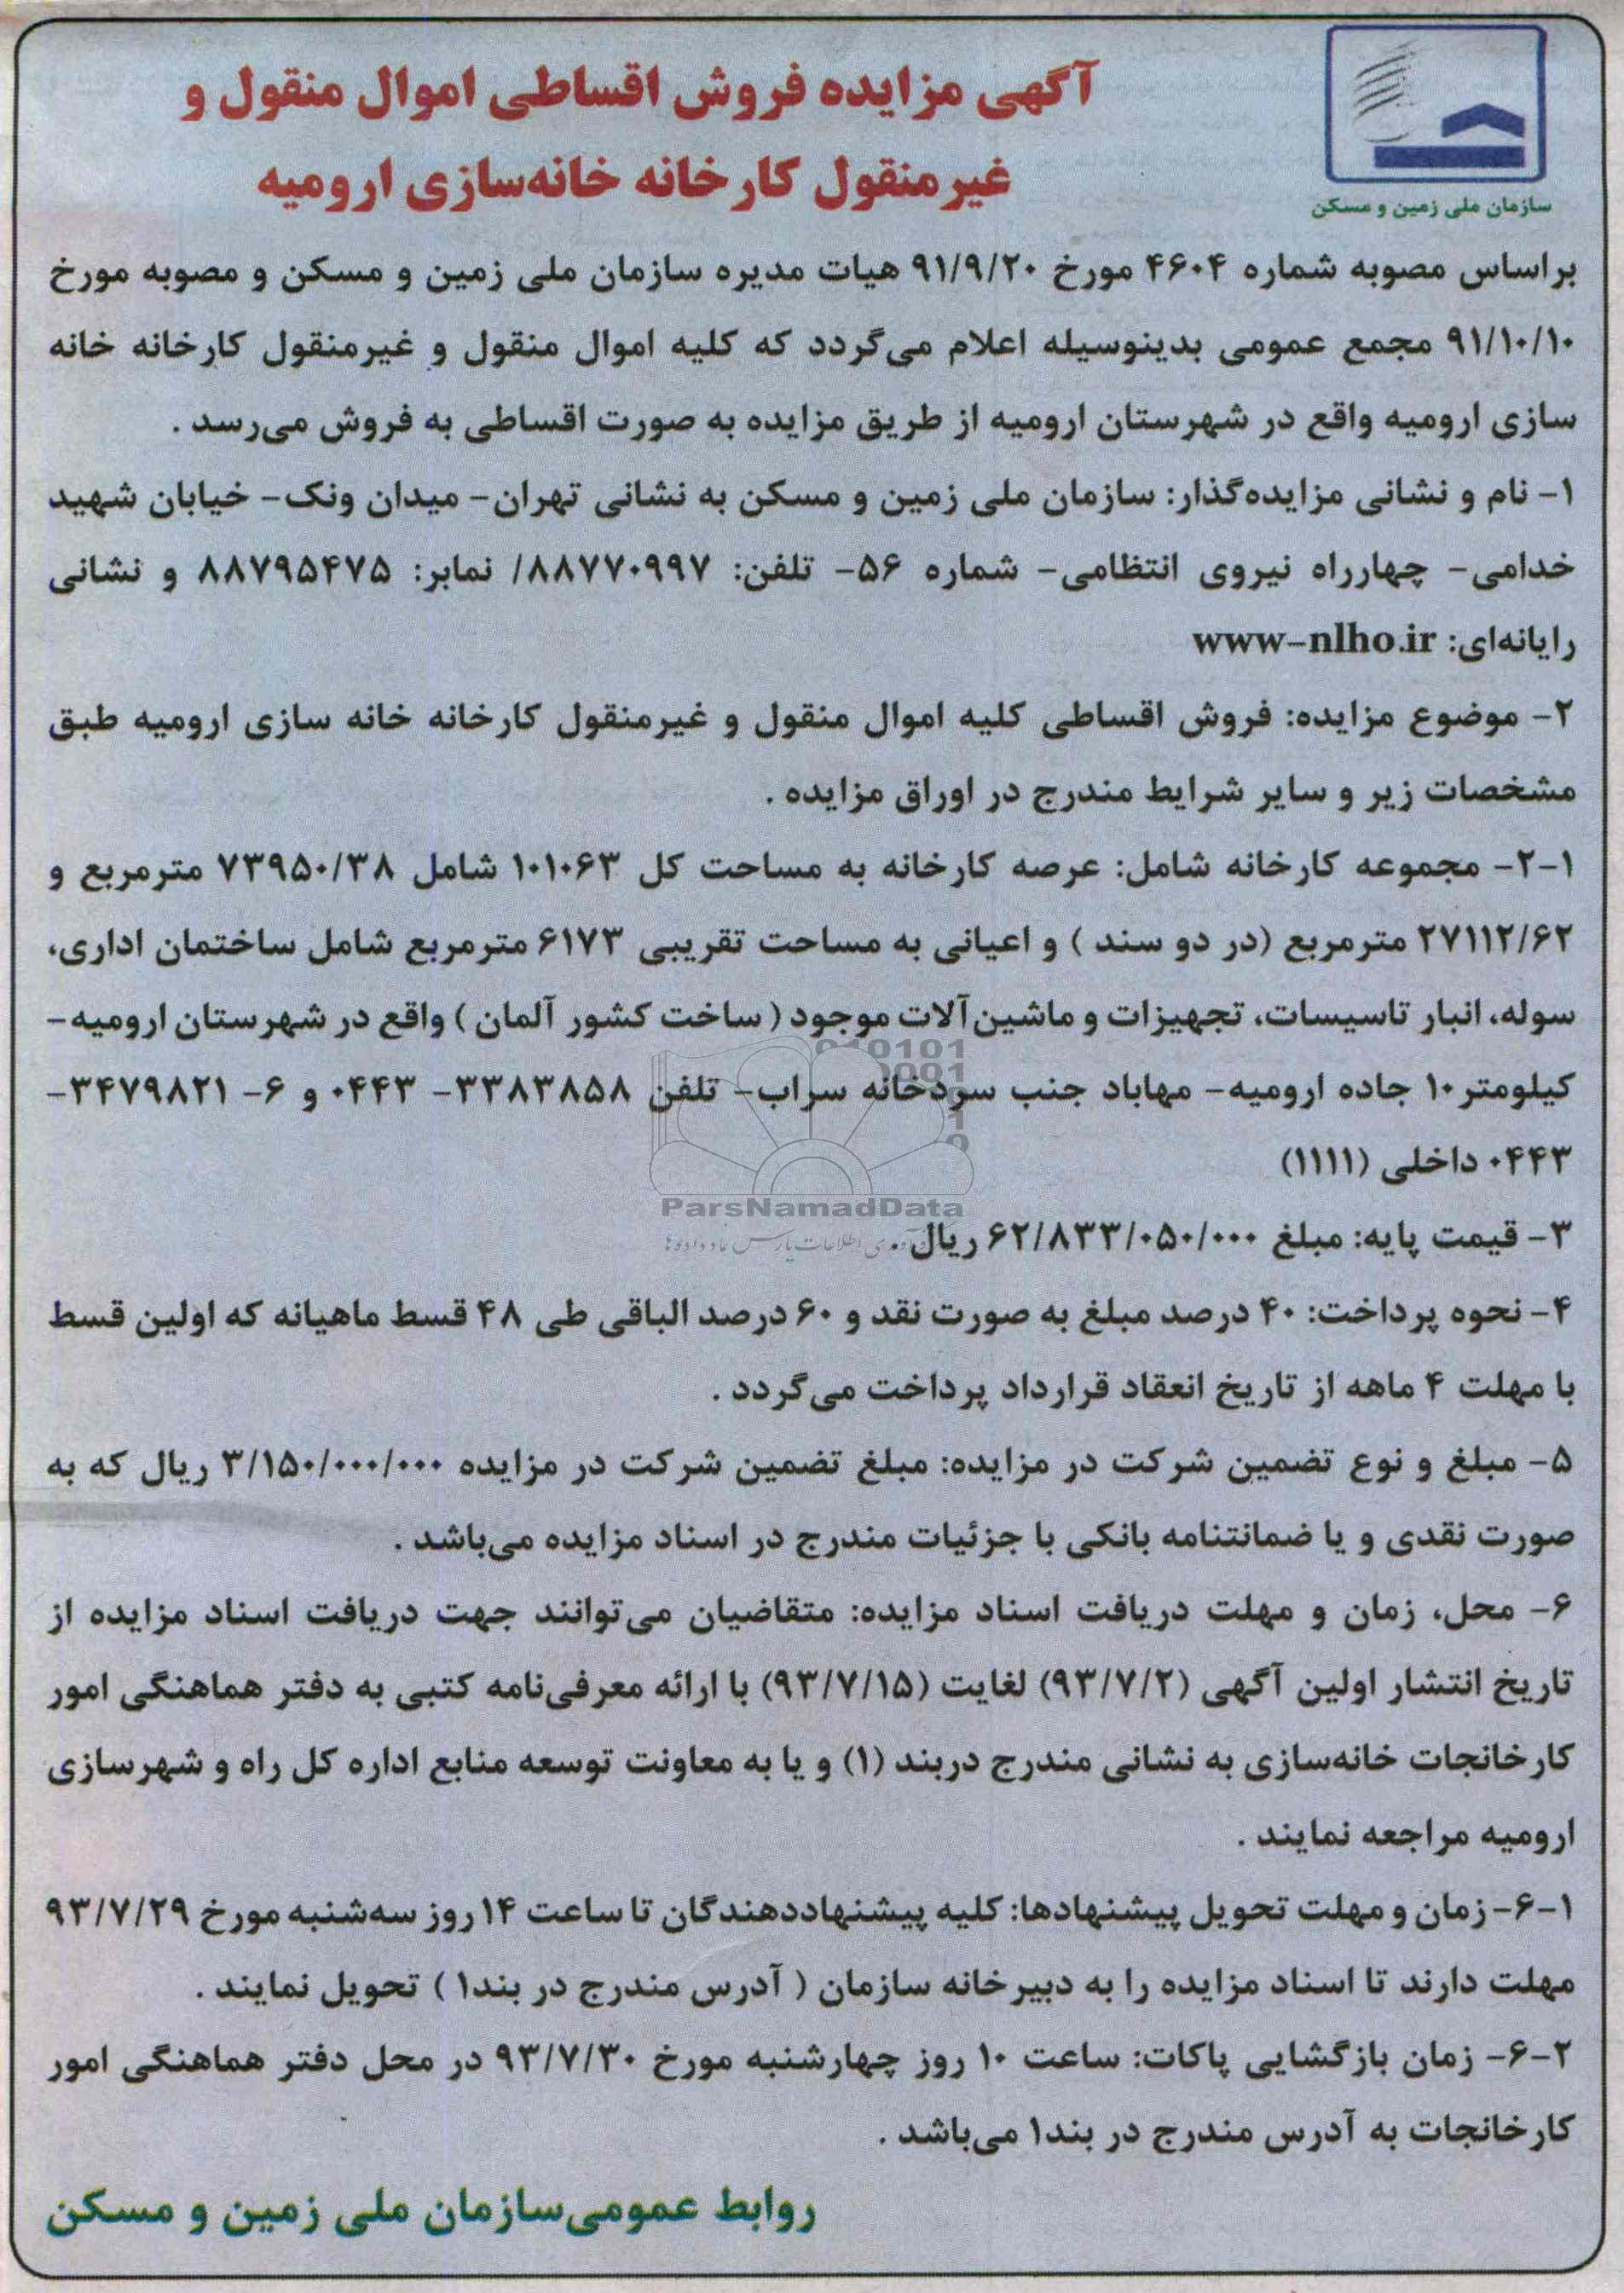 سازمان ملی زمین و مسکن
آگهی مزایده فروش اقساطی اموال منقول و
غیرمنقول کارخانه خانه‌سازی ارومیه
براساس مصوبه شماره ۴۶۰۴ مورخ ۹۱/۹/۲۰ هیات مدیره سازمان ملی زمین و مسکن و مصوبه مورخ
۹۱/۱۰/۱۰ مجمع عمومی بدینوسیله اعلام می‌گردد که کلیه اموال منقول و غیرمنقول کارخانه خانه
سازی ارومیه واقع در شهرستان ارومیه از طریق مزایده به صورت اقساطی به فروش می‌رسد .
۱- نام و نشانی مزایده‌گذار: سازمان ملی زمین و مسکن به نشانی تهران- میدان ونک- خیابان شهید
خدامی- چهارراه نیروی انتظامی- شماره ۵۶- تلفن: ۸۸۷۷۰۹۹۷/ نمابر: ۸۸۷۹۵۴۷۵ و نشانی
رایانه‌ای: www-nlho.ir
۲- موضوع مزایده: فروش اقساطی کلیه اموال منقول و غیرمنقول کارخانه خانه سازی ارومیه طبق
مشخصات زیر و سایر شرایط مندرج در اوراق مزایده .
۲-۱- مجموعه کارخانه شامل: عرصه کارخانه به مساحت کل ۱۰۱۰۶۳ شامل ۷۳۹۵۰/۳۸ مترمربع و
۲۷۱۱۲/۶۲ مترمربع (در دو سند ) و اعیانی به مساحت تقریبی ۶۱۷۳ مترمربع شامل ساختمان اداری،
سوله، انبار تاسیسات، تجهیزات و ماشین‌آلات موجود ( ساخت کشور آلمان ) واقع در شهرستان ارومیه-
کیلومتر ۱۰ جاده ارومیه- مهاباد جنب سردخانه سراب- تلفن ۳۳۸۳۸۵۸- ۰۴۴۳ و ۶- ۳۴۷۹۸۲۱-
۰۴۴۳ داخلی (۱۱۱۱)
ParsNamadData
۳- قیمت پایه: مبلغ ۶۲/۸۳۳/۰۵۰/۰۰۰ ریال .
۴- نحوه پرداخت: ۴۰ درصد مبلغ به صورت نقد و ۶۰ درصد الباقی طی ۴۸ قسط ماهیانه که اولین قسط
با مهلت ۴ ماهه از تاریخ انعقاد قرارداد پرداخت می‌گردد .
۵- مبلغ و نوع تضمین شرکت در مزایده: مبلغ تضمین شرکت در مزایده ۳/۱۵۰/۰۰۰/۰۰۰ ریال که به
صورت نقدی و یا ضمانتنامه بانکی با جزئیات مندرج در اسناد مزایده می‌باشد .
۶- محل، زمان و مهلت دریافت اسناد مزایده: متقاضیان می‌توانند جهت دریافت اسناد مزایده از
تاریخ انتشار اولین آگهی (۹۳/۷/۲) لغایت (۹۳/۷/۱۵) با ارائه معرفی‌نامه کتبی به دفتر هماهنگی امور
کارخانجات خانه‌سازی به نشانی مندرج دربند (۱) و یا به معاونت توسعه منابع اداره کل راه و شهرسازی
ارومیه مراجعه نمایند .
۶-۱- زمان و مهلت تحویل پیشنهادها: کلیه پیشنهاددهندگان تا ساعت ۱۴ روز سه‌شنبه مورخ ۹۳/۷/۲۹
مهلت دارند تا اسناد مزایده را به دبیرخانه سازمان ( آدرس مندرج در بند۱ ) تحویل نمایند .
۶-۲- زمان بازگشایی پاکات: ساعت ۱۰ روز چهارشنبه مورخ ۹۳/۷/۳۰ در محل دفتر هماهنگی امور
کارخانجات به آدرس مندرج در بند۱ می‌باشد .
روابط عمومی‌سازمان ملی زمین و مسکن